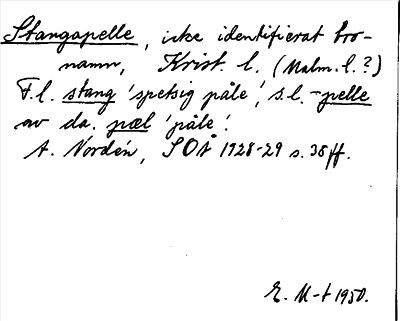 Stangapelle, icke identifierat bro-
namn, Krist. l. (Malm. l.?)
F.l. stang 'spetsig påle', s.l. -pelle
av da. pæl 'påle'.
A. Nordén, SOÅ 1928-29 s. 38 ff.
E. M-t 1950.